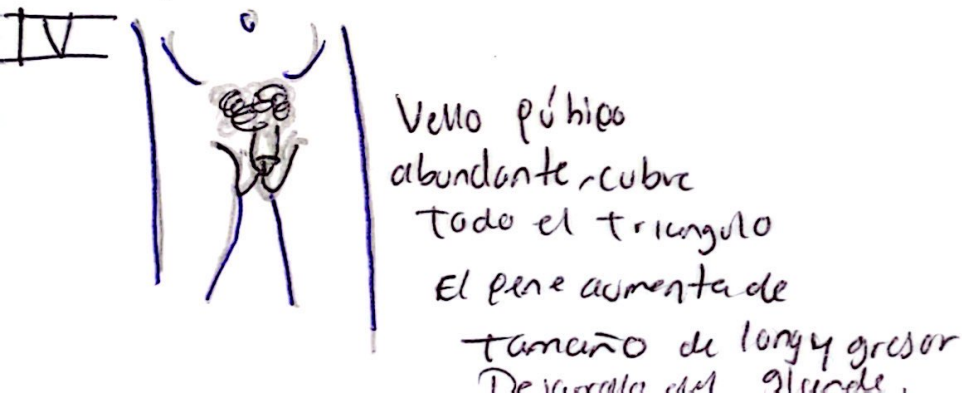 IV
Vello púbico
abundante, cubre
todo el triangulo
El pene aumenta de
tamaño de long y grosor
Desarrollo del glande.